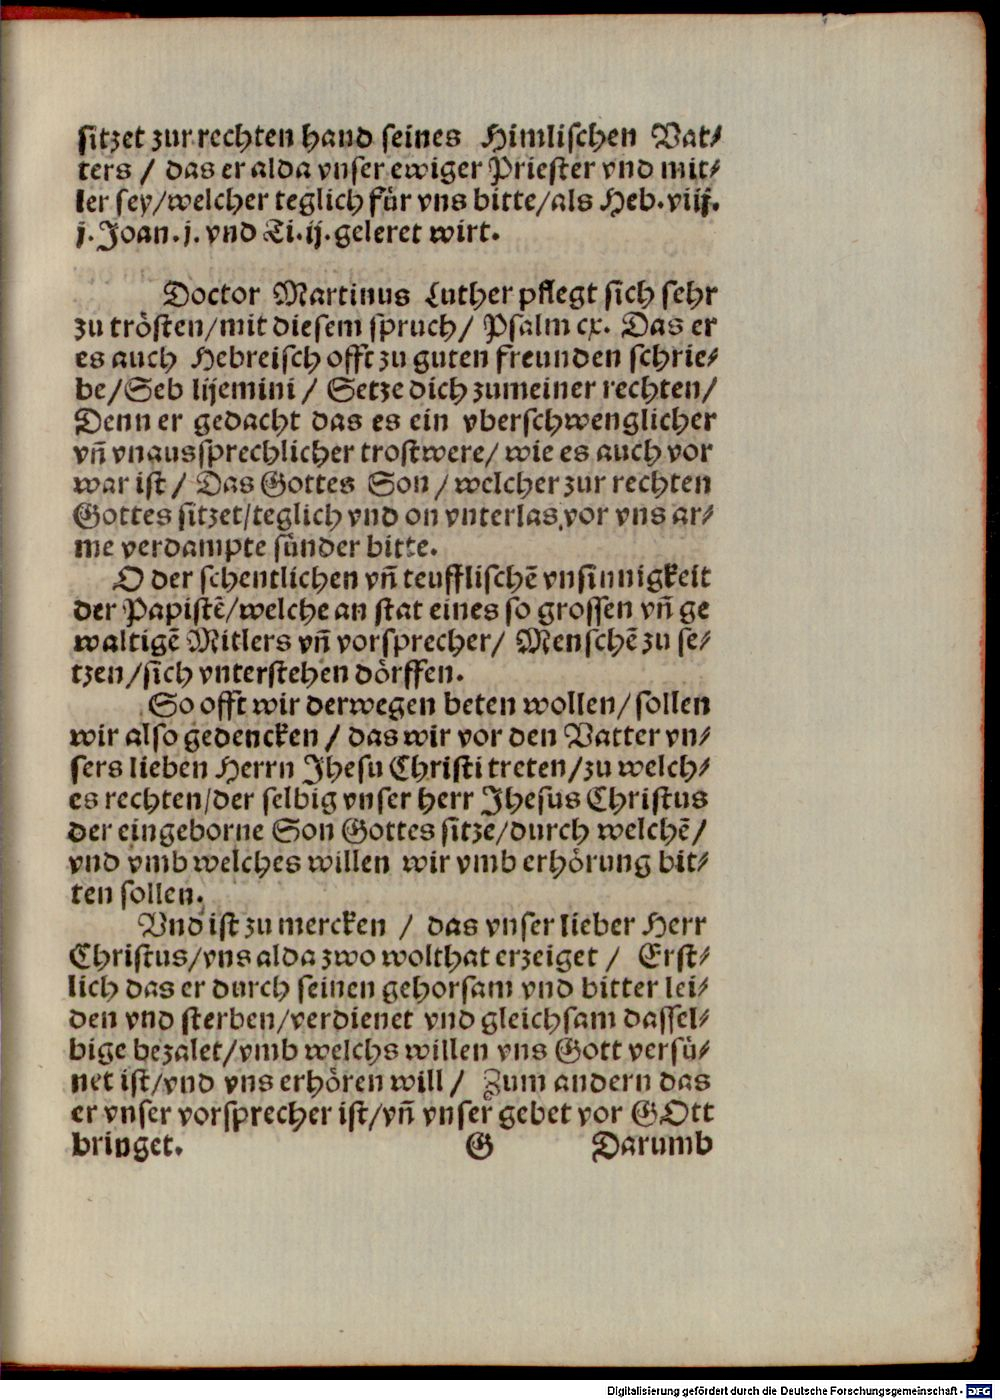 sitzet zur rechten hand seines Himlischen Vat⸗
ters / das er alda vnser ewiger Priester vnd mit⸗
ler sey/welcher teglich für vns bitte/als Heb.viij.
j.Joan.j.vnd Ti.ij.geleret wirt.
Doctor Martinus Luther pflegt sich sehr
zu trösten/mit diesem spruch/ Psalm cx. Das er
es auch Hebreisch offt zu guten freunden schrie⸗
be/Seb lijemini / Setze dich zumeiner rechten/
Denn er gedacht das es ein vberschwenglicher
vñ vnaussprechlicher trostwere/ wie es auch vor
war ist / Das Gottes Son / welcher zur rechten
Gottes sitzet/teglich vnd on vnterlas,vor vns ar⸗
me verdampte sünder bitte.
O der schentlichen vñ teufflischē vnsinnigkeit
der Papistē/welche an stat eines so grossen vñ ge
waltigē Mitlers vñ vorsprecher/ Menschē zu se⸗
tzen/sich vnterstehen dörffen.
So offt wir derwegen beten wollen/sollen
wir also gedencken / das wir vor den Vatter vn⸗
sers lieben Herrn Jhesu Christi treten/zu welch⸗
es rechten/der selbig vnser herr Jhesus Christus
der eingeborne Son Gottes sitze/durch welchē/
vnd vmb welches willen wir vmb erhörung bit⸗
ten sollen.
Vnd ist zu mercken / das vnser lieber Herr
Christus/vns alda zwo wolthat erzeiget / Erst⸗
lich das er durch seinen gehorsam vnd bitter lei⸗
den vnd sterben/verdienet vnd gleichsam dassel⸗
bige bezalet/vmb welchs willen vns Gott versü⸗
net ist/vnd vns erhören will / Zum andern das
er vnser vorsprecher ist/vñ vnser gebet vor GOtt
bringet. G Darumb
Digitalisierung gefördert durch die Deutsche Forschungsgemeinschaft - DFG